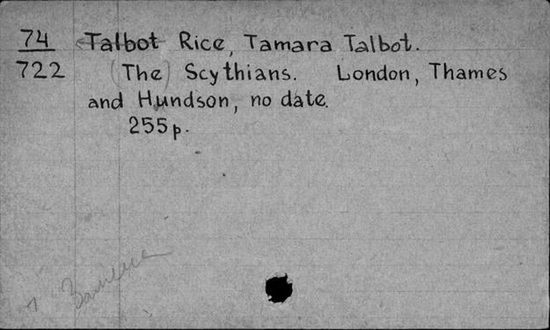 74 Talbot Rice, Tamara Talbot.
722 (The) Scythians. London, Thames
and Hundson, no date.
255p.